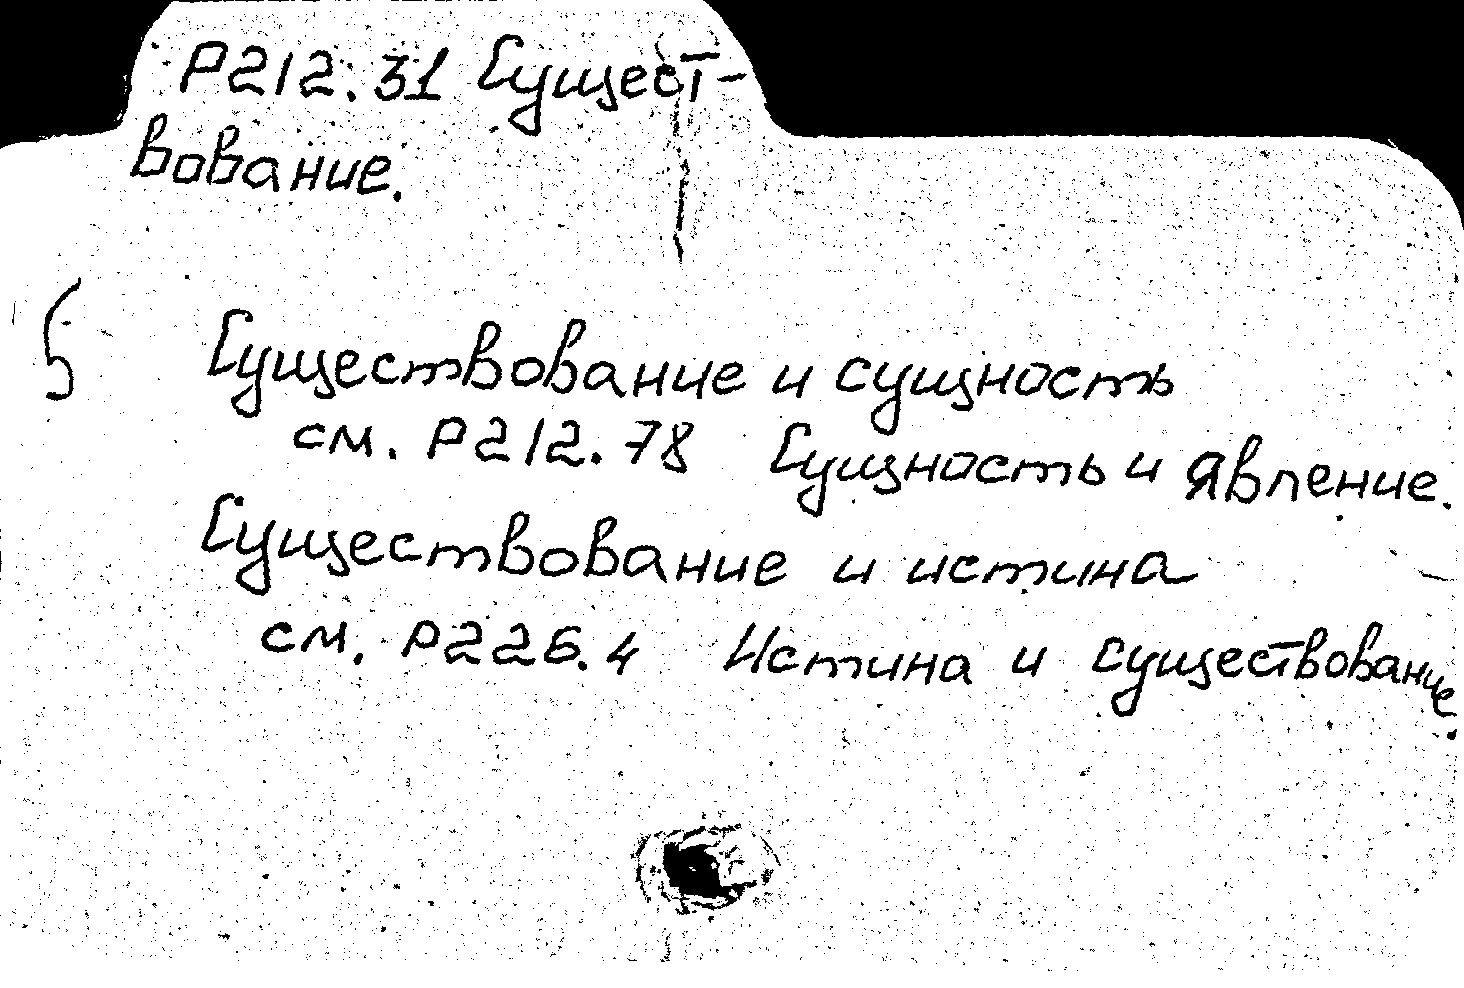 Р212.31 Сущест-
вование.
Существование и сущность
см. Р212.78 Сущность и явление.
Существование и истина
см. Р226.4 Истина и существование.